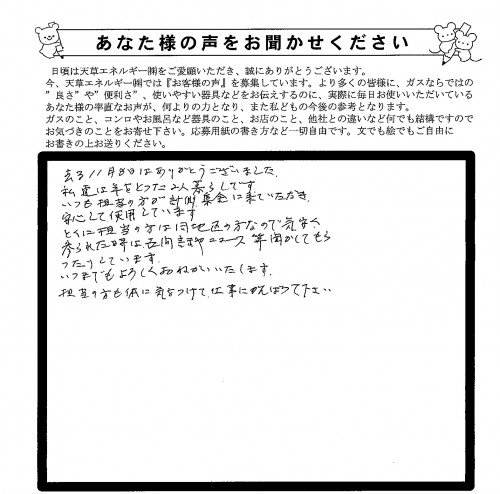 あなた様の声をお聞かせください
日頃は天草エネルギー㈱をご愛顧いただき、誠にありがとうございます。
今、天草エネルギー㈱では『お客様の声』を募集しています。より多くの皆様に、ガスならではの
”良さ”や”便利さ”、使いやすい器具などをお伝えするのに、実際に毎日お使いいただいている
あなた様の率直なお声が、何よりの力となり、また私どもの今後の参考となります。
ガスのこと、コンロやお風呂など器具のこと、お店のこと、他社との違いなど何でも結構ですので
お気づきのことをお寄せ下さい。応募用紙の書き方など一切自由です。文でも絵でもご自由に
お書きの上お送りください。
去る11月8日はありがとうございました。
私達は年をとった2人暮らしです。
いつも担当の方が計測、集金に来ていただき
安心して使用しています
とくに担当の方は同地区の方なので気安く
参られた時は
ニュース等聞かしてもら
ったりしています。
いつまでもよろしくおねがいいたします。
担当の方も体に気をつけて仕事にがんばって下さい